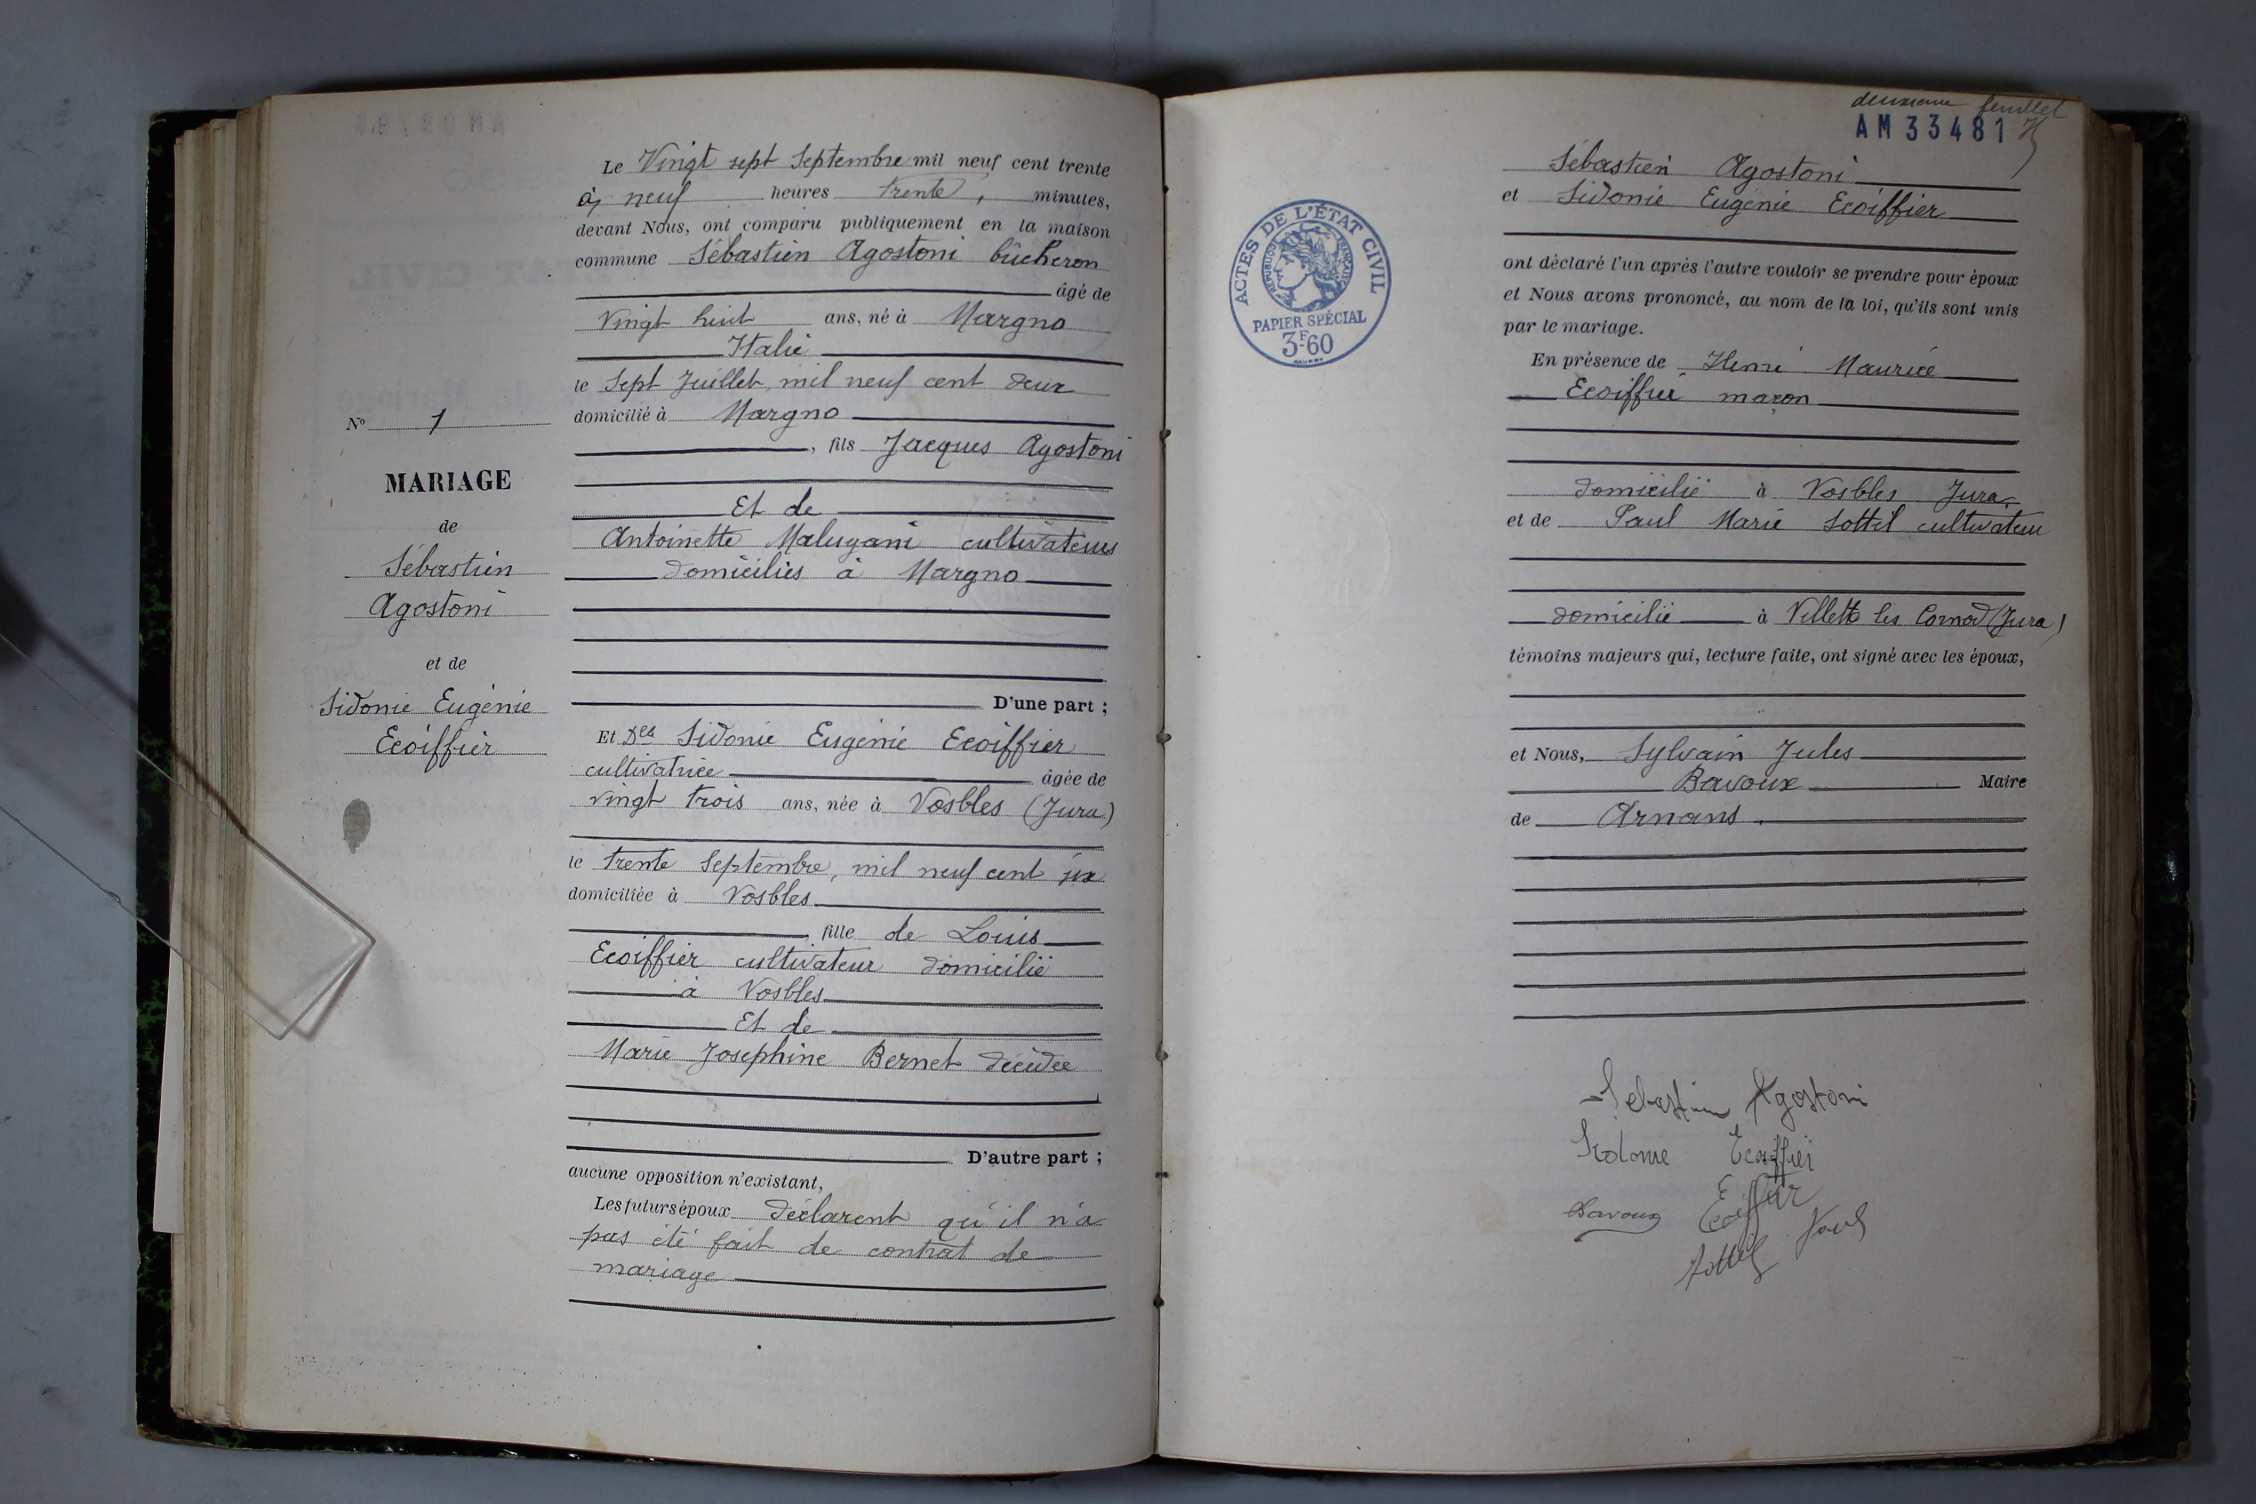 N° 1
MARIAGE
de
Sébastien
Agostoni
et de
Sidonie Eugénie
Ecoiffier
Le Vingt sept Septembre mil neuf cent trente
à neuf heures trente, minutes,
devant Nous, ont comparu publiquement en la maison
commune Sébastien Agostoni bûcheron
âgé de
vingt huit ans, né à Margno
Italie
le Sept Juillet, mil neuf cent deux
domicilié à Margno
, fils Jacques Agostoni
Et de
Antoinette Malugani cultivateurs
domiciliés à Margno
D'une part ;
Et Dlle Sidonie Eugénie Ecoiffier
cultivatrice âgée de
vingt trois ans, née à Vosbles (Jura)
le trente Septembre, mil neuf cent six
domiciliée à Vosbles
, fille de Louis
Ecoiffier cultivateur domicilié
à Vosbles
Et de
Marie Josephine Bernet décédée
D'autre part ;
aucune opposition n'existant,
Les futurs époux déclarent qu'il n'a
pas été fait de contrat de
mariage
deuxième feuillet
AM 33481
ACTES DE L'ÉTAT CIVIL
RÉPUBLIQUE FRANÇAISE
PAPIER SPÉCIAL
3F60
Sébastien Agostoni
et Sidonie Eugénie Ecoiffier
ont déclaré l'un après l'autre vouloir se prendre pour époux
et Nous avons prononcé, au nom de la loi, qu'ils sont unis
par le mariage.
En présence de Henri Maurice
Ecoiffier maçon
domicilié à Vosbles Jura
et de Paul Marie Sottil cultivateur
domicilié à Villette les Cornod (Jura)
témoins majeurs qui, lecture faite, ont signé avec les époux,
et Nous, Sylvain Jules
Bavoux Maire
de Arnans.
Sebastien Agostoni
Sidonie Ecoiffier
Ecoiffier
Bavoux
Sottil Paul